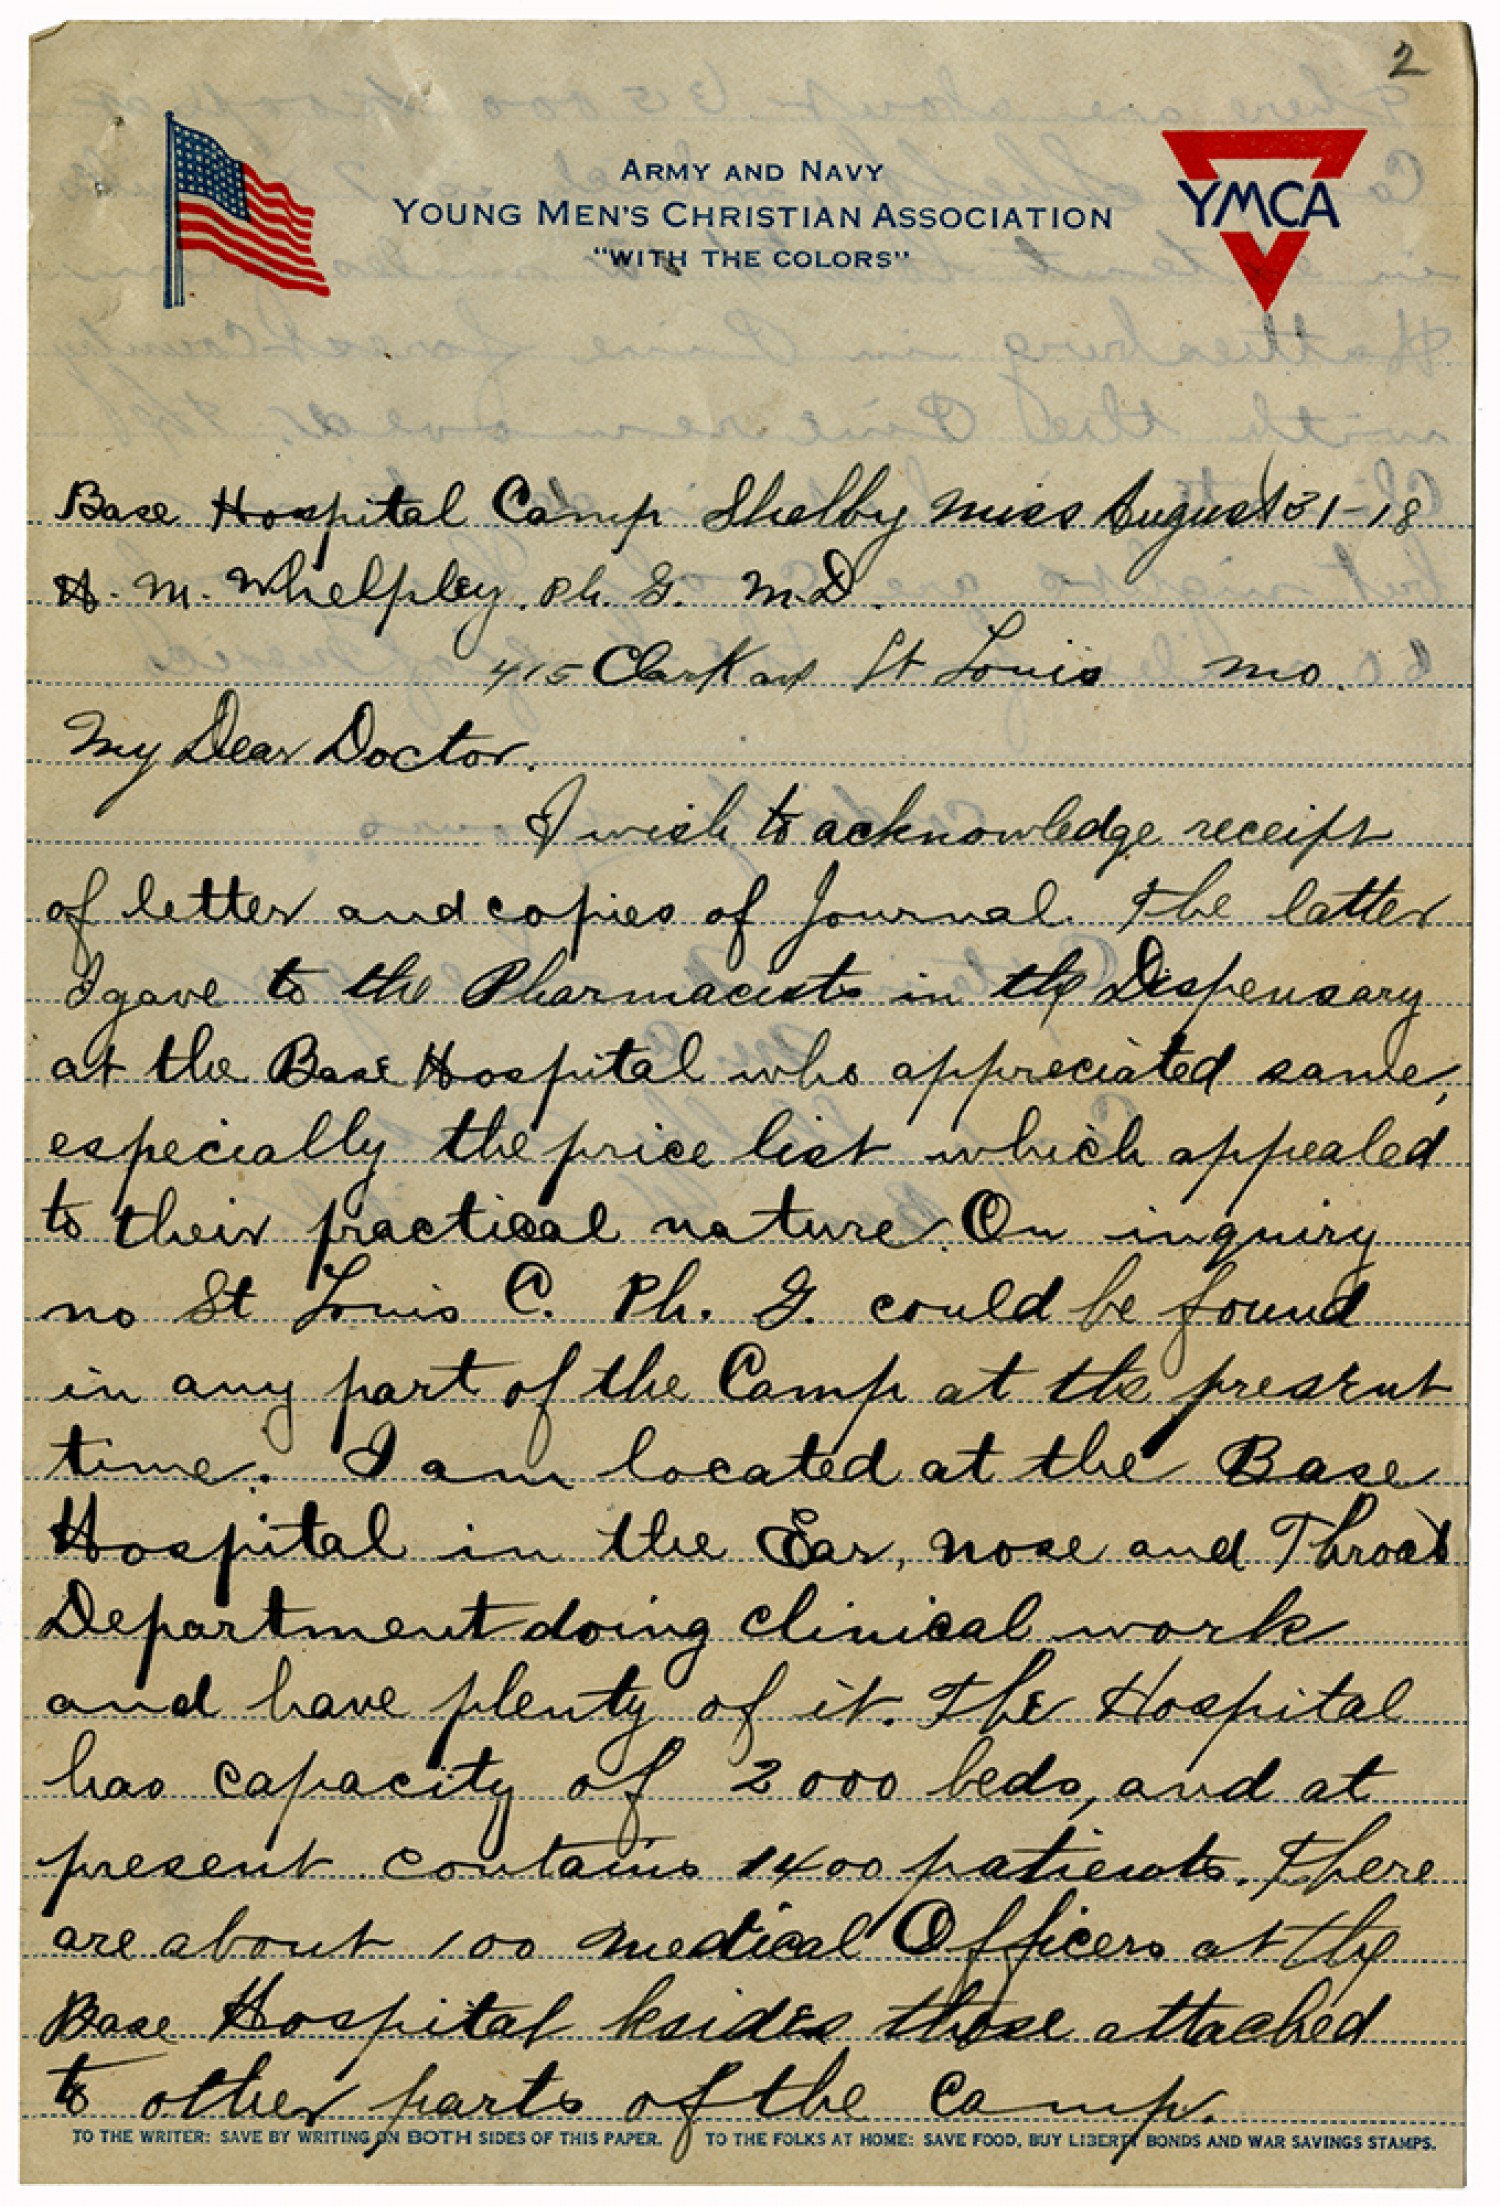 2
ARMY AND NAVY
YOUNG MEN'S CHRISTIAN ASSOCIATION
"WITH THE COLORS"
YMCA
Base Hospital Camp Shelby Miss August 31-18
H. M. Whelpley. Ph. G. M.D.
415 Clark ave St Louis Mo.
My Dear Doctor.
I wish to acknowledge receipt
of letter and copies of Journal. The latter
I gave to the Pharmacists in the Dispensary
at the Base Hospital who appreciated same,
especially the price list which appealed
to their practical nature. On inquiry
no St Louis C. Ph. G. could be found
in any part of the Camp at the present
time. I am located at the Base
Hospital in the Ear, Nose and Throat
Department doing clinical work
and have plenty of it. The Hospital
has capacity of 2000 beds, and at
present contains 1400 patients. There
are about 100 Medical Officers at the
Base Hospital besides those attached
to other parts of the Camp.
TO THE WRITER: SAVE BY WRITING ON BOTH SIDES OF THIS PAPER. TO THE FOLKS AT HOME: SAVE FOOD, BUY LIBERTY BONDS AND WAR SAVINGS STAMPS.